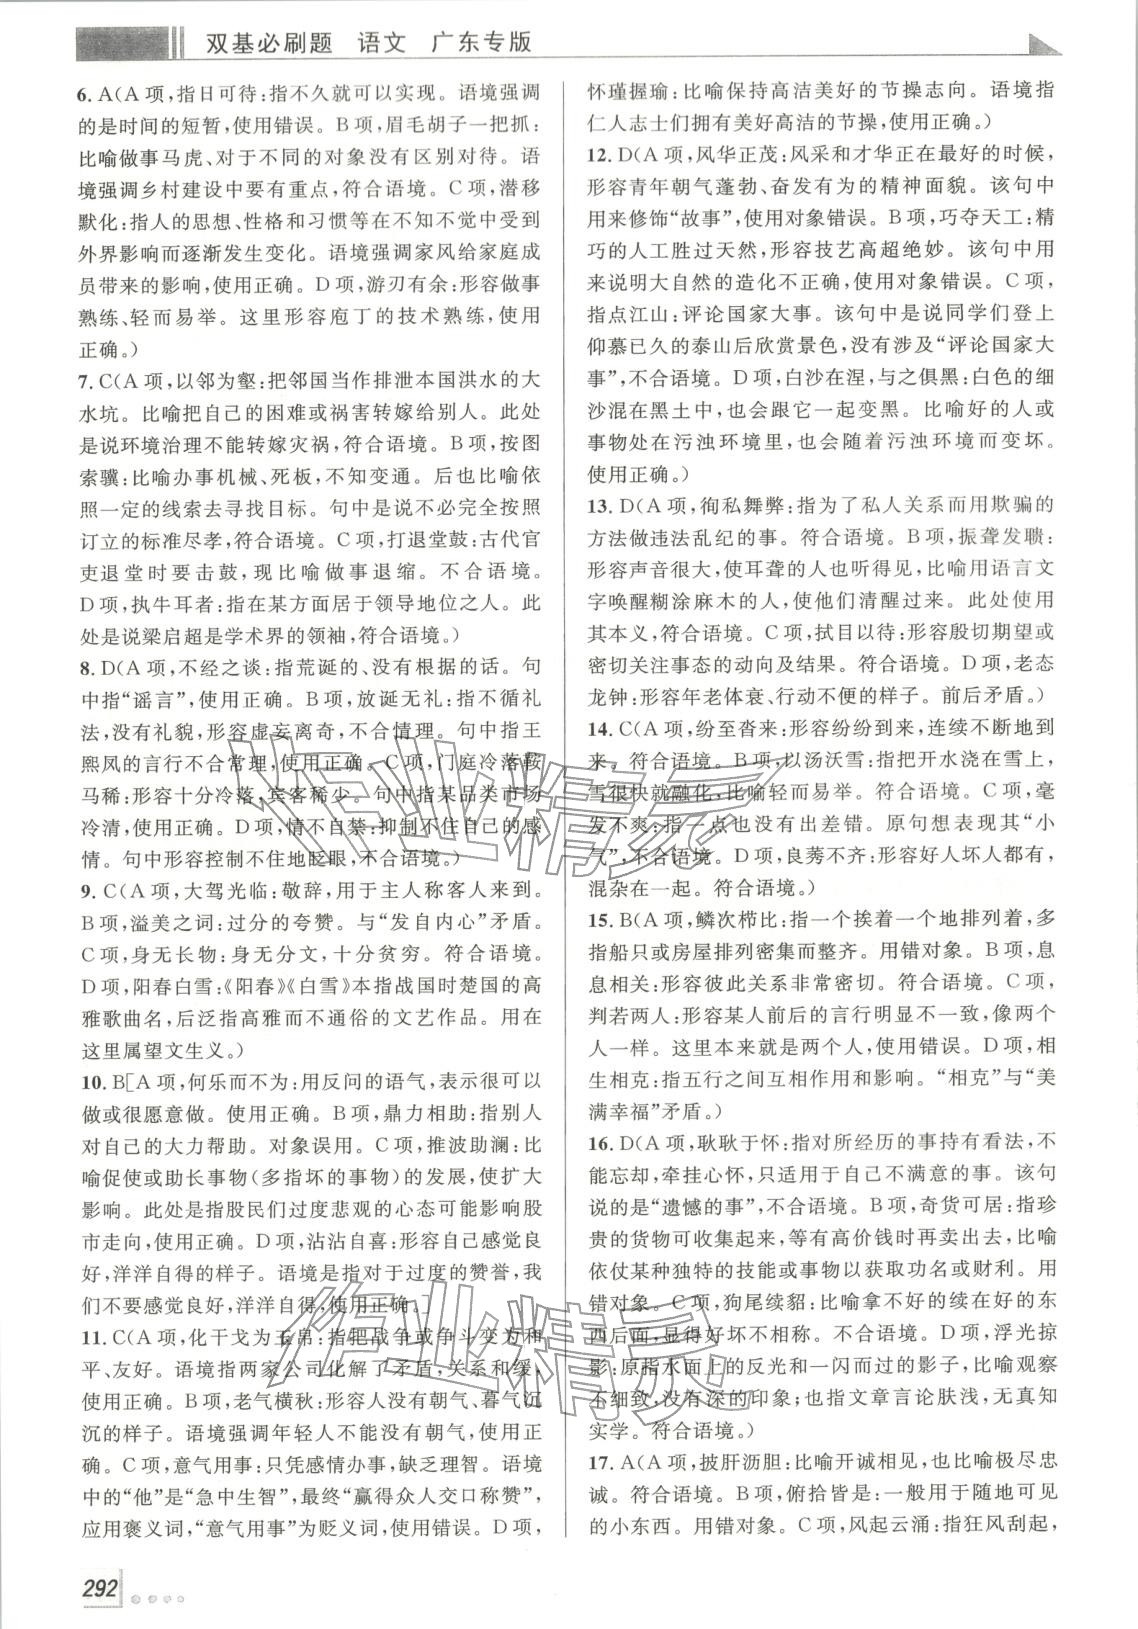 双基必刷题 语文 广东专版
6. A(A项,指日可待:指不久就可以实现。语境强调
的是时间的短暂,使用错误。B项,眉毛胡子一把抓:
比喻做事马虎、对于不同的对象没有区别对待。语
境强调乡村建设中要有重点,符合语境。C项,潜移
默化:指人的思想、性格和习惯等在不知不觉中受到
外界影响而逐渐发生变化。语境强调家风给家庭成
员带来的影响,使用正确。D项,游刃有余:形容做事
熟练、轻而易举。这里形容庖丁的技术熟练,使用
正确。)
7. C(A项,以邻为壑:把邻国当作排泄本国洪水的大
水坑。比喻把自己的困难或祸害转嫁给别人。此处
是说环境治理不能转嫁灾祸,符合语境。B项,按图
索骥:比喻办事机械、死板,不知变通。后也比喻依
照一定的线索去寻找目标。句中是说不必完全按照
订立的标准尽孝,符合语境。C项,打退堂鼓:古代官
吏退堂时要击鼓,现比喻做事退缩。不合语境。
D项,执牛耳者:指在某方面居于领导地位之人。此
处是说梁启超是学术界的领袖,符合语境。)
8. D(A项,不经之谈:指荒诞的、没有根据的话。句
中指“谣言”,使用正确。B项,放诞无礼:指不循礼
法,没有礼貌,形容虚妄离奇,不合情理。句中指王
熙凤的言行不合常理,使用正确。C项,门庭冷落鞍
马稀:形容十分冷落、宾客稀少。句中指某品类市场
冷清,使用正确。D项,情不自禁:抑制不住自己的感
情。句中形容控制不住地眨眼,不合语境。)
9. C(A项,大驾光临:敬辞,用于主人称客人来到。
B项,溢美之词:过分的夸赞。与“发自内心”矛盾。
C项,身无长物:身无分文,十分贫穷。符合语境。
D项,阳春白雪:《阳春》《白雪》本指战国时楚国的高
雅歌曲名,后泛指高雅而不通俗的文艺作品。用在
这里属望文生义。)
10. B[A项,何乐而不为:用反问的语气,表示很可以
做或很愿意做。使用正确。B项,鼎力相助:指别人
对自己的大力帮助。对象误用。C项,推波助澜:比
喻促使或助长事物(多指坏的事物)的发展,使扩大
影响。此处是指股民们过度悲观的心态可能影响股
市走向,使用正确。D项,沾沾自喜:形容自己感觉良
好,洋洋自得的样子。语境是指对于过度的赞誉,我
们不要感觉良好,洋洋自得,使用正确。]
11. C(A项,化干戈为玉帛:指把战争或争斗变为和
平、友好。语境指两家公司化解了矛盾,关系和缓,
使用正确。B项,老气横秋:形容人没有朝气、暮气沉
沉的样子。语境强调年轻人不能没有朝气,使用正
确。C项,意气用事:只凭感情办事,缺乏理智。语境
中的“他”是“急中生智”,最终“赢得众人交口称赞”,
应用褒义词,“意气用事”为贬义词,使用错误。D项,
怀瑾握瑜:比喻保持高洁美好的节操志向。语境指
仁人志士们拥有美好高洁的节操,使用正确。)
12. D(A项,风华正茂:风采和才华正在最好的时候,
形容青年朝气蓬勃、奋发有为的精神面貌。该句中
用来修饰“故事”,使用对象错误。B项,巧夺天工:精
巧的人工胜过天然,形容技艺高超绝妙。该句中用
来说明大自然的造化不正确,使用对象错误。C项,
指点江山:评论国家大事。该句中是说同学们登上
仰慕已久的泰山后欣赏景色,没有涉及“评论国家大
事”,不合语境。D项,白沙在涅,与之俱黑:白色的细
沙混在黑土中,也会跟它一起变黑。比喻好的人或
事物处在污浊环境里,也会随着污浊环境而变坏。
使用正确。)
13. D(A项,徇私舞弊:指为了私人关系而用欺骗的
方法做违法乱纪的事。符合语境。B项,振聋发聩:
形容声音很大,使耳聋的人也听得见,比喻用语言文
字唤醒糊涂麻木的人,使他们清醒过来。此处使用
其本义,符合语境。C项,拭目以待:形容殷切期望或
密切关注事态的动向及结果。符合语境。D项,老态
龙钟:形容年老体衰、行动不便的样子。前后矛盾。)
14. C(A项,纷至沓来:形容纷纷到来,连续不断地到
来。符合语境。B项,以汤沃雪:指把开水浇在雪上,
雪很快就融化,比喻轻而易举。符合语境。C项,毫
发不爽:指一点也没有出差错。原句想表现其“小
气”,不合语境。D项,良莠不齐:形容好人坏人都有,
混杂在一起。符合语境。)
15. B(A项,鳞次栉比:指一个挨着一个地排列着,多
指船只或房屋排列密集而整齐。用错对象。B项,息
息相关:形容彼此关系非常密切。符合语境。C项,
判若两人:形容某人前后的言行明显不一致,像两个
人一样。这里本来就是两个人,使用错误。D项,相
生相克:指五行之间互相作用和影响。“相克”与“美
满幸福”矛盾。)
16. D(A项,耿耿于怀:指对所经历的事持有看法,不
能忘却,牵挂心怀,只适用于自己不满意的事。该句
说的是“遗憾的事”,不合语境。B项,奇货可居:指珍
贵的货物可收集起来,等有高价钱时再卖出去,比喻
依仗某种独特的技能或事物以获取功名或财利。用
错对象。C项,狗尾续貂:比喻拿不好的续在好的东
西后面,显得好坏不相称。不合语境。D项,浮光掠
影:原指水面上的反光和一闪而过的影子,比喻观察
不细致,没有深的印象;也指文章言论肤浅,无真知
实学。符合语境。)
17. A(A项,披肝沥胆:比喻开诚相见,也比喻极尽忠
诚。符合语境。B项,俯拾皆是:一般用于随地可见
的小东西。用错对象。C项,风起云涌:指狂风刮起,
292
作业精灵
作业精灵